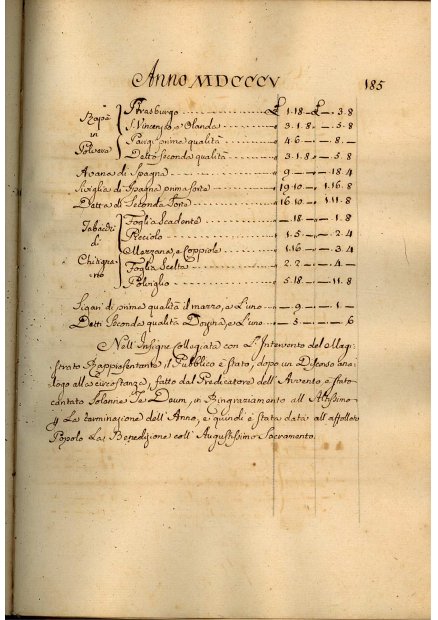 Anno MDCCCV 185
Rapè in Polvere
Strasburgo £ 1.18 — £ — 3.8
S. Vincenzo e Olanda 3.1.8 — 5.8
Parigi prima qualità 4.6 — 8 —
Detto seconda qualità 3.1.8 — 5.8
Avana di Spagna 9 — — 18.4
Siviglia di Spagna prima sorte 19.10 — 1.16.8
Detta di Seconda Sorte 16.10 — 1.11.8
Tabacchi di
Foglia Scadente — 18 — 1.8
Ricciolo 1.5 — 2.4
Mezzana, e Coppiole 1.16 — 3.4
Foglia Scelta 2.2 — 4 —
Polviglio 5.18 — 11.8
Sigari di prima qualità il mazzo, e l'uno — 9 — 1 —
Detti Seconda qualità e l'uno — 5 — 6
Nell' Insigne Collegiata con L'Intervento del Magi-
strato Rappresentante il Pubblico è stato, dopo un Discorso ana-
logo alla circostanza, fatto dal Predicatore dell' Avvento, è stato
cantato Solenne Te Deum, in Ringraziamento all' Altissimo
La terminazione dell' Anno, e quindi è stata data all' affollato
Popolo La Benedizione coll' Augustissimo Sacramento.